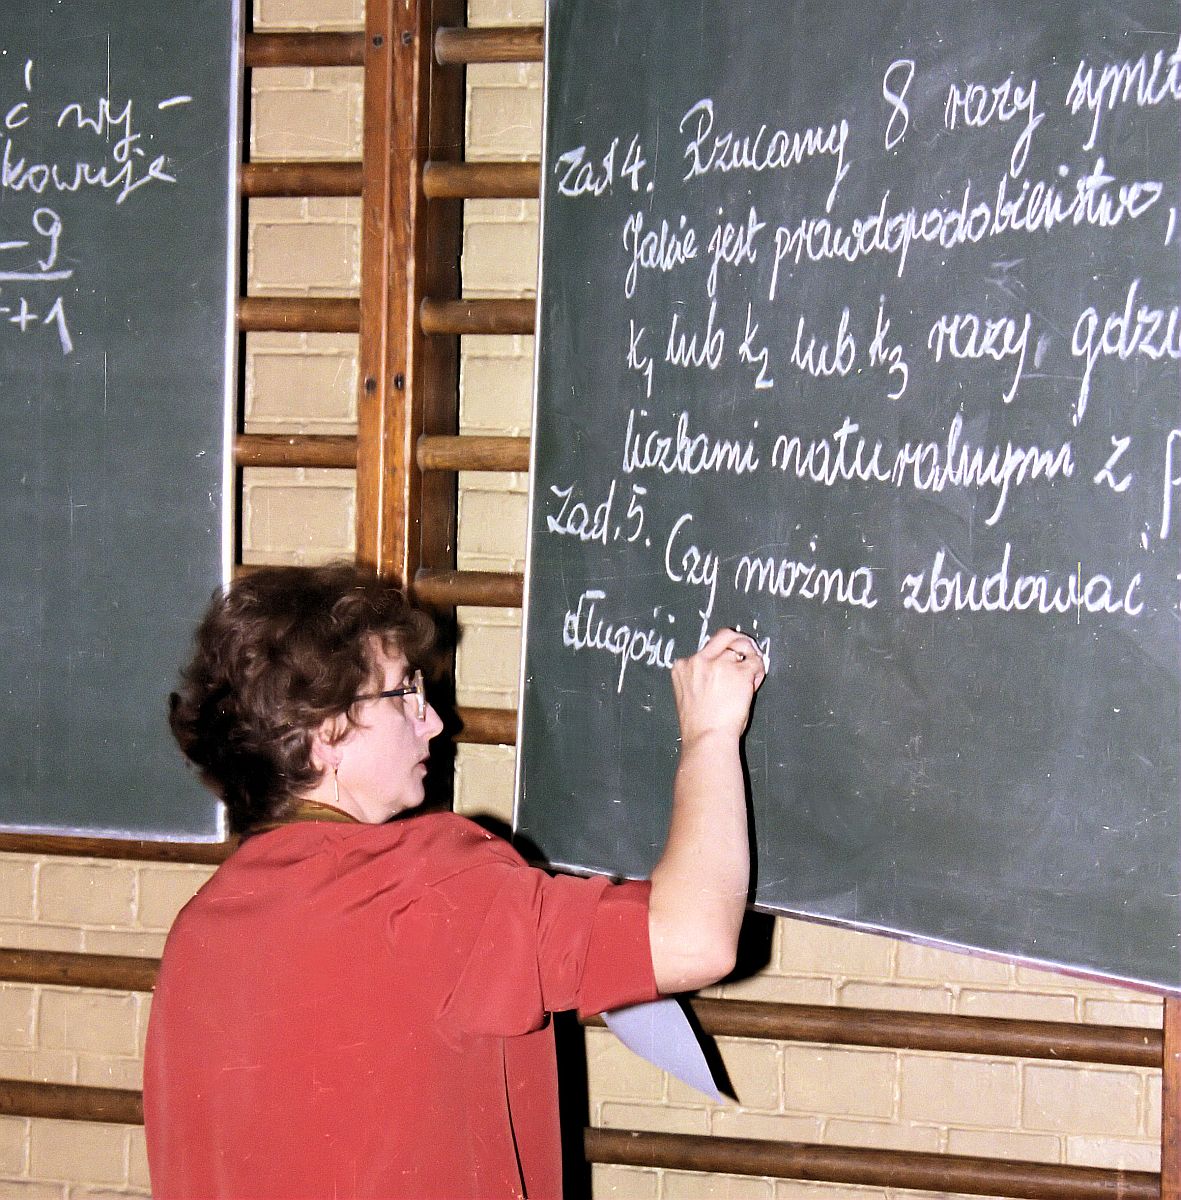 ć wy-
kowuje
-9
+1
Zad 4. Rzucamy 8 razy symet
Jakie jest prawdopodobieństwo,
k₁ lub k₂ lub k₃ razy, gdzi
liczbami naturalnymi z p
Zad. 5. Czy można zbudować
długości